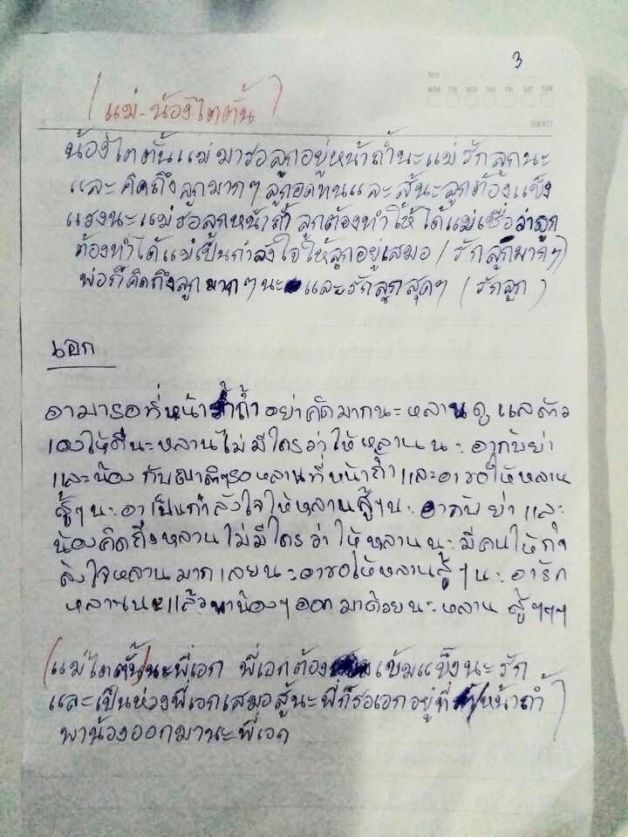 3
(แม่-น้องไตตั้น)
น้องไตตั้นแม่มารอลูกอยู่หน้าถ้ำนะแม่รักลูกนะ
และคิดถึงลูกมากๆลูกอดทนและสู้นะลูกต้องแข็ง
แรงนะแม่รอลูกหน้าถ้ำ ลูกต้องทำให้ได้แม่เชื่อว่าลูก
ต้องทำได้แม่เป็นกำลังใจให้ลูกอยู่เสมอ (รักลูกมากๆ)
พ่อก็คิดถึงลูกมากๆนะ และรักลูกสุดๆ (รักลูก)
เอก
อามารอที่หน้าถ้ำ อย่าคิดมากนะหลานดูแลตัว
เองให้ดีนะหลานไม่มีใครว่าให้หลานนะ อากับย่า
และน้อง กับญาติๆรอหลานที่หน้าถ้ำและอาขอให้หลาน
สู้ๆนะอาเป็นกำลังใจให้หลานสู้ๆนะ อากับย่าและ
น้องคิดถึงหลานไม่มีใครว่าให้หลานนะ มีคนให้กำ
ลังใจหลานมากเลยนะอาขอให้หลานสู้ๆนะ อารัก
หลานนะแล้วพาน้องๆออกมาด้วยนะหลาน สู้ๆๆๆ
(แม่ไตตั้น)นะพี่เอก พี่เอกต้อง เข้มแข็งนะรัก
และเป็นห่วงพี่เอกเสมอสู้นะพี่ก็รอเอกอยู่ที่ หน้าถ้ำ
พาน้องออกมานะพี่เอก